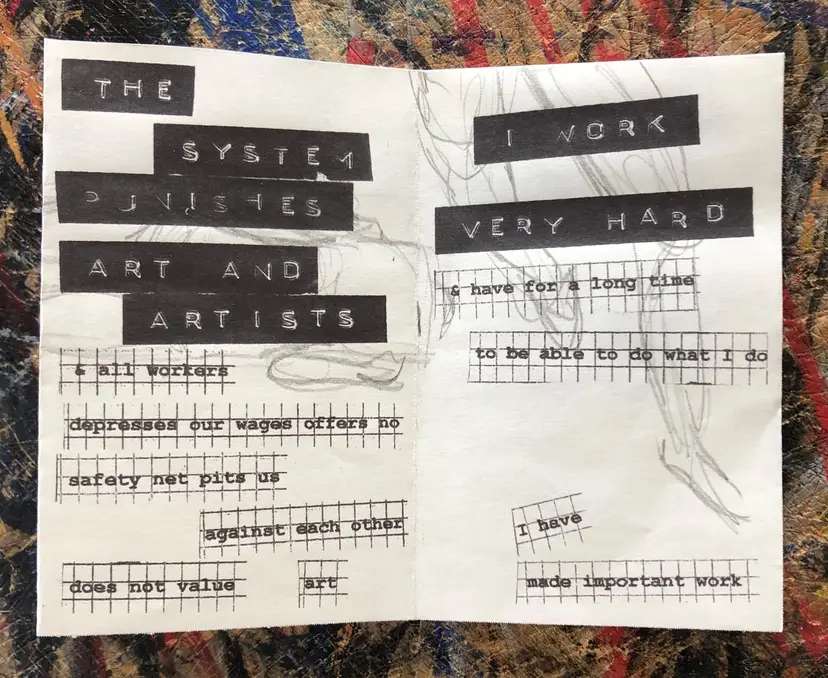 THE
SYSTEM
PUNISHES
ART AND
ARTISTS
& all workers
depresses our wages offers no
safety net pits us
against each other
does not value art
I WORK
VERY HARD
& have for a long time
to be able to do what I do
I have
made important work